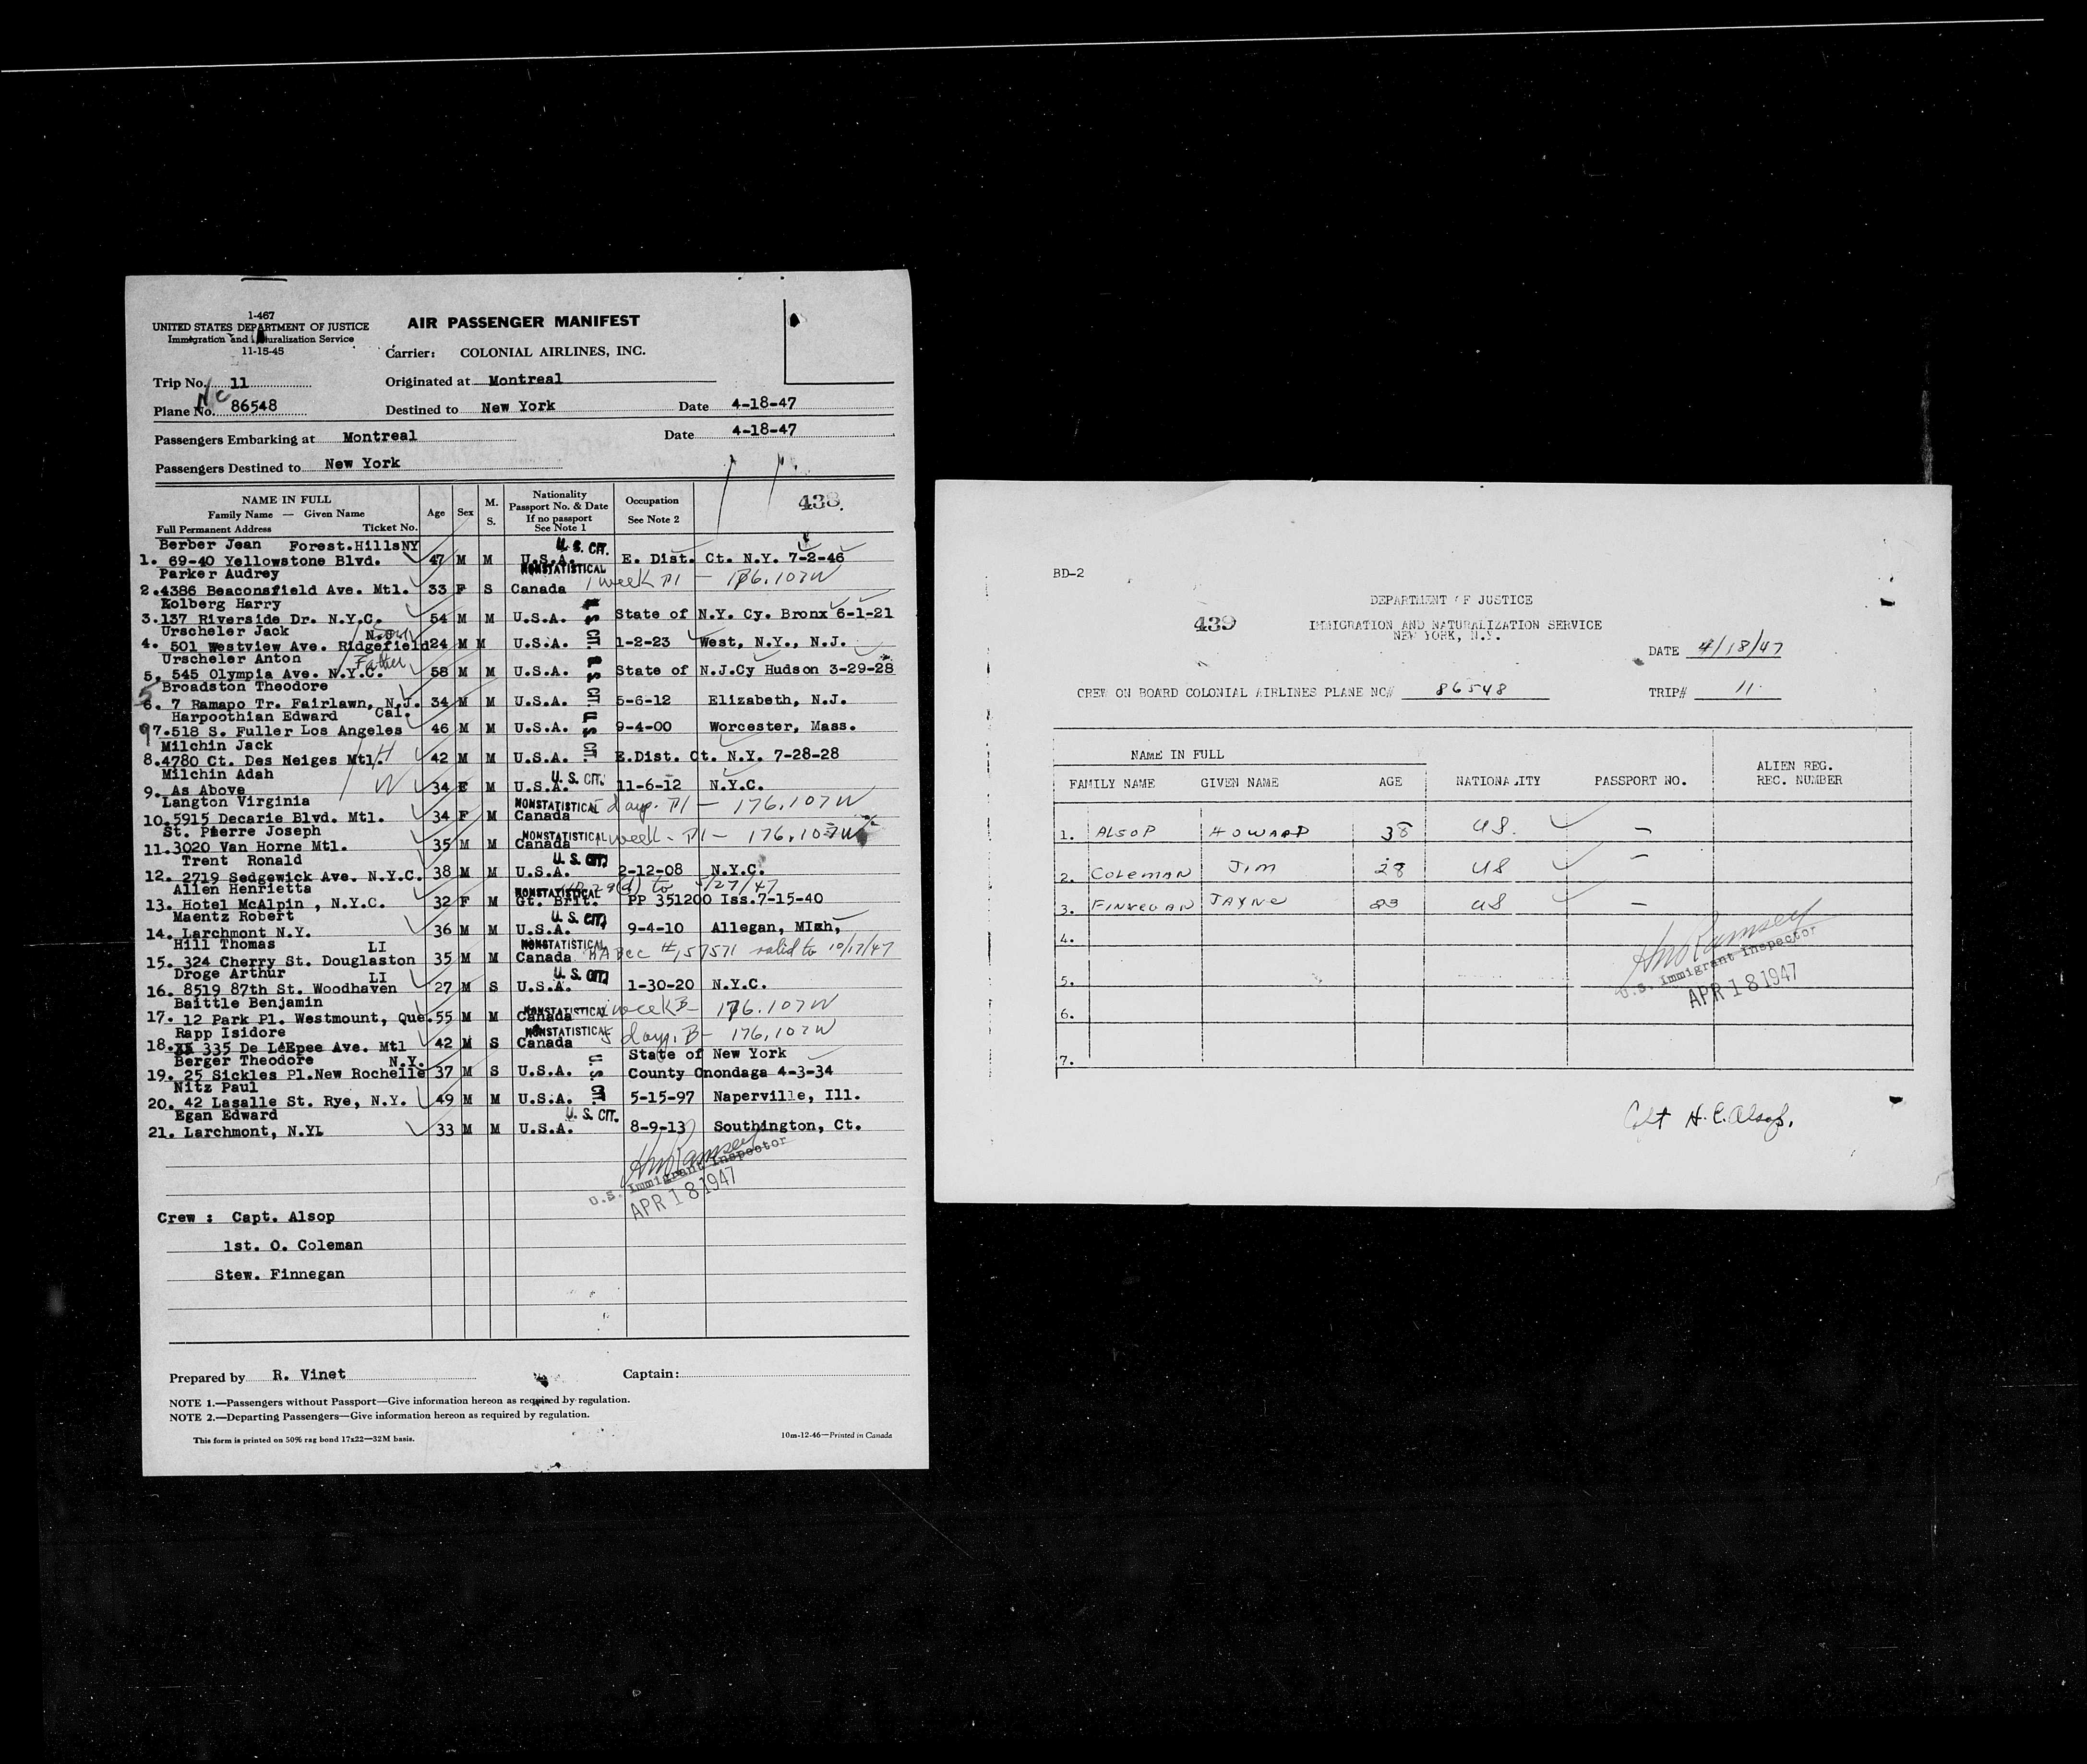 1-467
UNITED STATES DEPARTMENT OF JUSTICE
Immigration and Naturalization Service
11-15-45
AIR PASSENGER MANIFEST
Carrier: COLONIAL AIRLINES, INC.
Trip No. 11
Originated at Montreal
NC
Plane No. 86548
Destined to New York Date 4-18-47
Passengers Embarking at Montreal Date 4-18-47
Passengers Destined to New York
438.
NAME IN FULL
Family Name — Given Name
Full Permanent Address Ticket No.
Age Sex M. S.
Nationality
Passport No. & Date
If no passport
See Note 1
Occupation
See Note 2
Berber Jean Forest.HillsNY U.S. CIT.
1. 69-40 Yellowstone Blvd. 47 M M U.S.A. E. Dist. Ct. N.Y. 7-2-46
Parker Audrey NONSTATISTICAL 1 week P1 — 176.107W
2.4386 Beaconsfield Ave. Mtl. 33 F S Canada
Kolberg Harry
3.137 Riverside Dr. N.Y.C. 54 M M U.S.A. U.S. CIT. State of N.Y. Cy. Bronx 6-1-21
Urscheler Jack N.J. Son
4. 501 Westview Ave. Ridgefield 24 M M U.S.A. 1-2-23 West, N.Y., N.J.
Urscheler Anton Father
5. 545 Olympia Ave. N.Y.C. 58 M M U.S.A. U.S. CIT. State of N.J.Cy Hudson 3-29-28
Broadston Theodore
6. 7 Ramapo Tr. Fairlawn, N.J. 34 M M U.S.A. 5-6-12 Elizabeth, N.J.
Harpoothian Edward Cal.
7.518 S. Fuller Los Angeles 46 M M U.S.A. U.S. CIT. 9-4-00 Worcester, Mass.
Milchin Jack
8.4780 Ct. Des Neiges Mtl. H 42 M M U.S.A. E.Dist. Ct. N.Y. 7-28-28
Milchin Adah U.S. CIT.
9. As Above W 34 F M U.S.A. 11-6-12 N.Y.C.
Langton Virginia NONSTATISTICAL days. P1 — 176.107W
10.5915 Decarie Blvd. Mtl. 34 F M Canada
St. Pierre Joseph NONSTATISTICAL week - P1 — 176.107W
11.3020 Van Horne Mtl. 35 M M Canada
Trent Ronald U.S. CIT.
12. 2719 Sedgewick Ave. N.Y.C. 38 M M U.S.A. 2-12-08 N.Y.C.
Allen Henrietta NONSTATISTICAL
13. Hotel McAlpin , N.Y.C. 32 F M Gt. Brit. PP 351200 Iss.7-15-40
Maentz Robert U.S. CIT.
14. Larchmont N.Y. 36 M M U.S.A. 9-4-10 Allegan, MIch,
Hill Thomas LI NONSTATISTICAL
15. 324 Cherry St. Douglaston 35 M M Canada valid to 10/17/47
Droge Arthur LI U.S. CIT.
16. 8519 87th St. Woodhaven 27 M S U.S.A. 1-30-20 N.Y.C.
Baittle Benjamin NONSTATISTICAL week B — 176.107W
17. 12 Park Pl. Westmount, Que. 55 M M Canada
Rapp Isidore NONSTATISTICAL 5 days. B — 176.107W
18. 335 De L'Epee Ave. Mtl 42 M S Canada
Berger Theodore N.Y. State of New York
19. 25 Sickles Pl.New Rochelle 37 M S U.S.A. U.S. CIT. County Onondaga 4-3-34
Nitz Paul
20. 42 Lasalle St. Rye, N.Y. 49 M M U.S.A. 5-15-97 Naperville, Ill.
Egan Edward U.S. CIT.
21. Larchmont, N.Y. 33 M M U.S.A. 8-9-13 Southington, Ct.
HW Ramsey
U.S. Immigrant Inspector
APR 18 1947
Crew : Capt. Alsop
1st. O. Coleman
Stew. Finnegan
Prepared by R. Vinet Captain:
NOTE 1.—Passengers without Passport—Give information hereon as required by regulation.
NOTE 2.—Departing Passengers—Give information hereon as required by regulation.
This form is printed on 50% rag bond 17x22—32M basis. 10m-12-46—Printed in Canada
BD-2
DEPARTMENT OF JUSTICE
439 IMMIGRATION AND NATURALIZATION SERVICE
NEW YORK, N.Y.
DATE 4/18/47
CREW ON BOARD COLONIAL AIRLINES PLANE NC# 86548 TRIP# 11
NAME IN FULL
FAMILY NAME GIVEN NAME AGE NATIONALITY PASSPORT NO. ALIEN REG. REC. NUMBER
1. ALSOP HOWARD 38 US. —
2. COLEMAN JIM 28 US —
3. FINNEGAN JAYNE 23 US —
4.
5.
6.
7.
HW Ramsey
U.S. Immigrant Inspector
APR 18 1947
Capt H.C. Alsop.